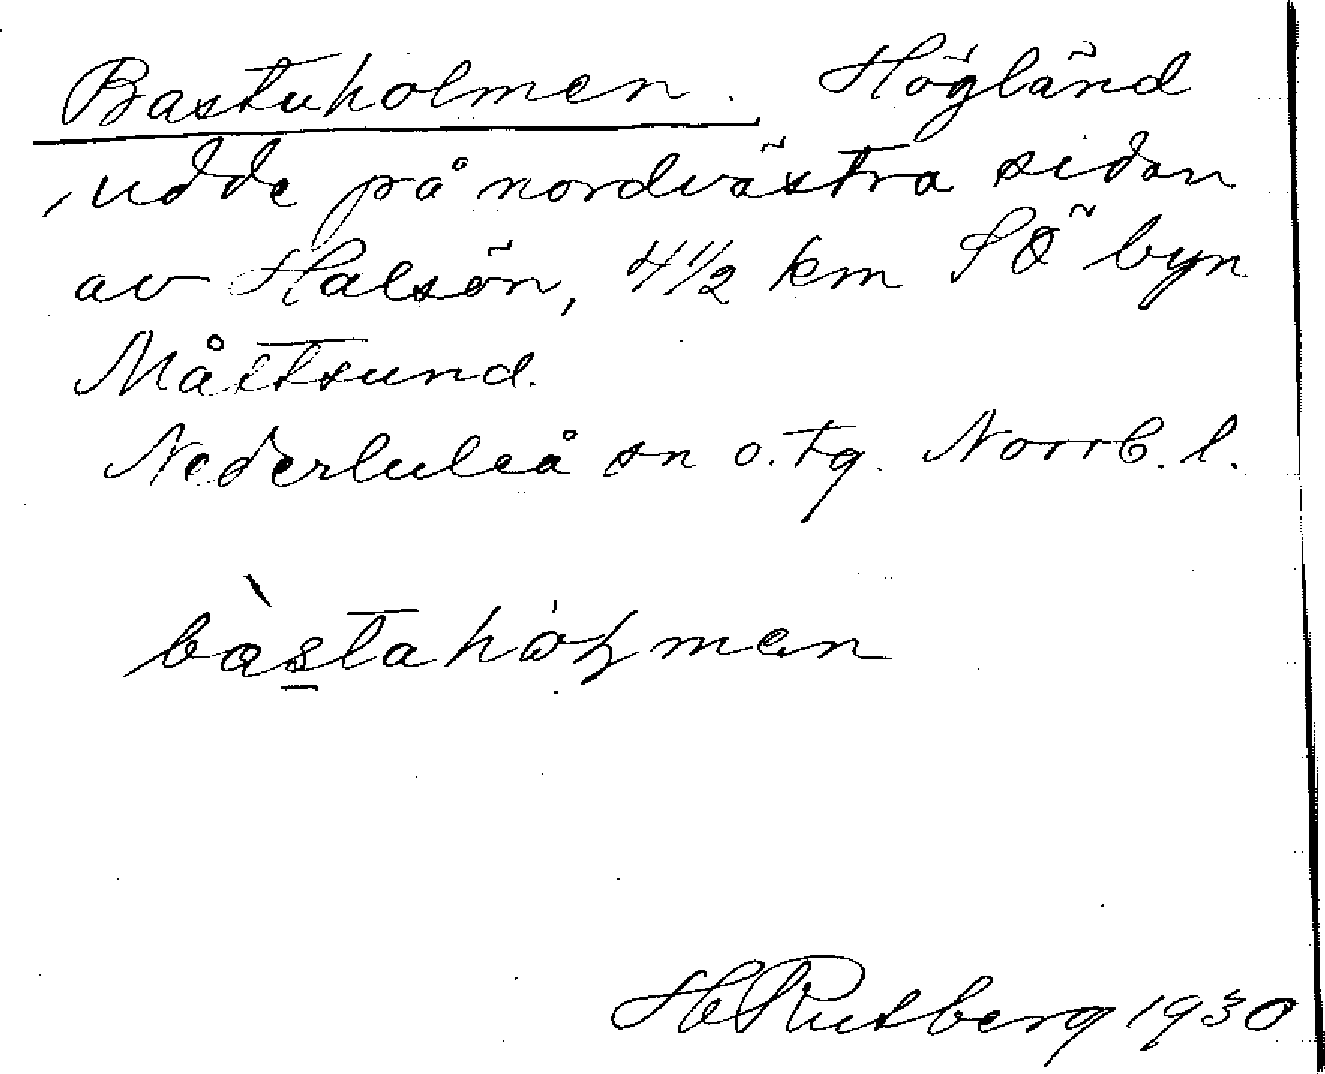 Bastuholmen. Högländ
udde på nordvästra sidan
av Halsön, 4 1/2 km SÖ byn
Måttsund.
Nederluleå sn o. tg. Norrb. l.
bàstahɷ̇ɽmen
H Rutberg 1930